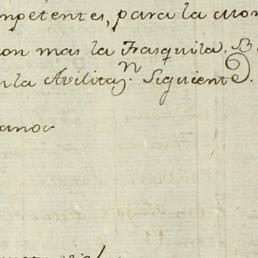 mpetentes, para la Mon
on mas la Frasquila. B
n la Avilitan. Siguiente.
anos